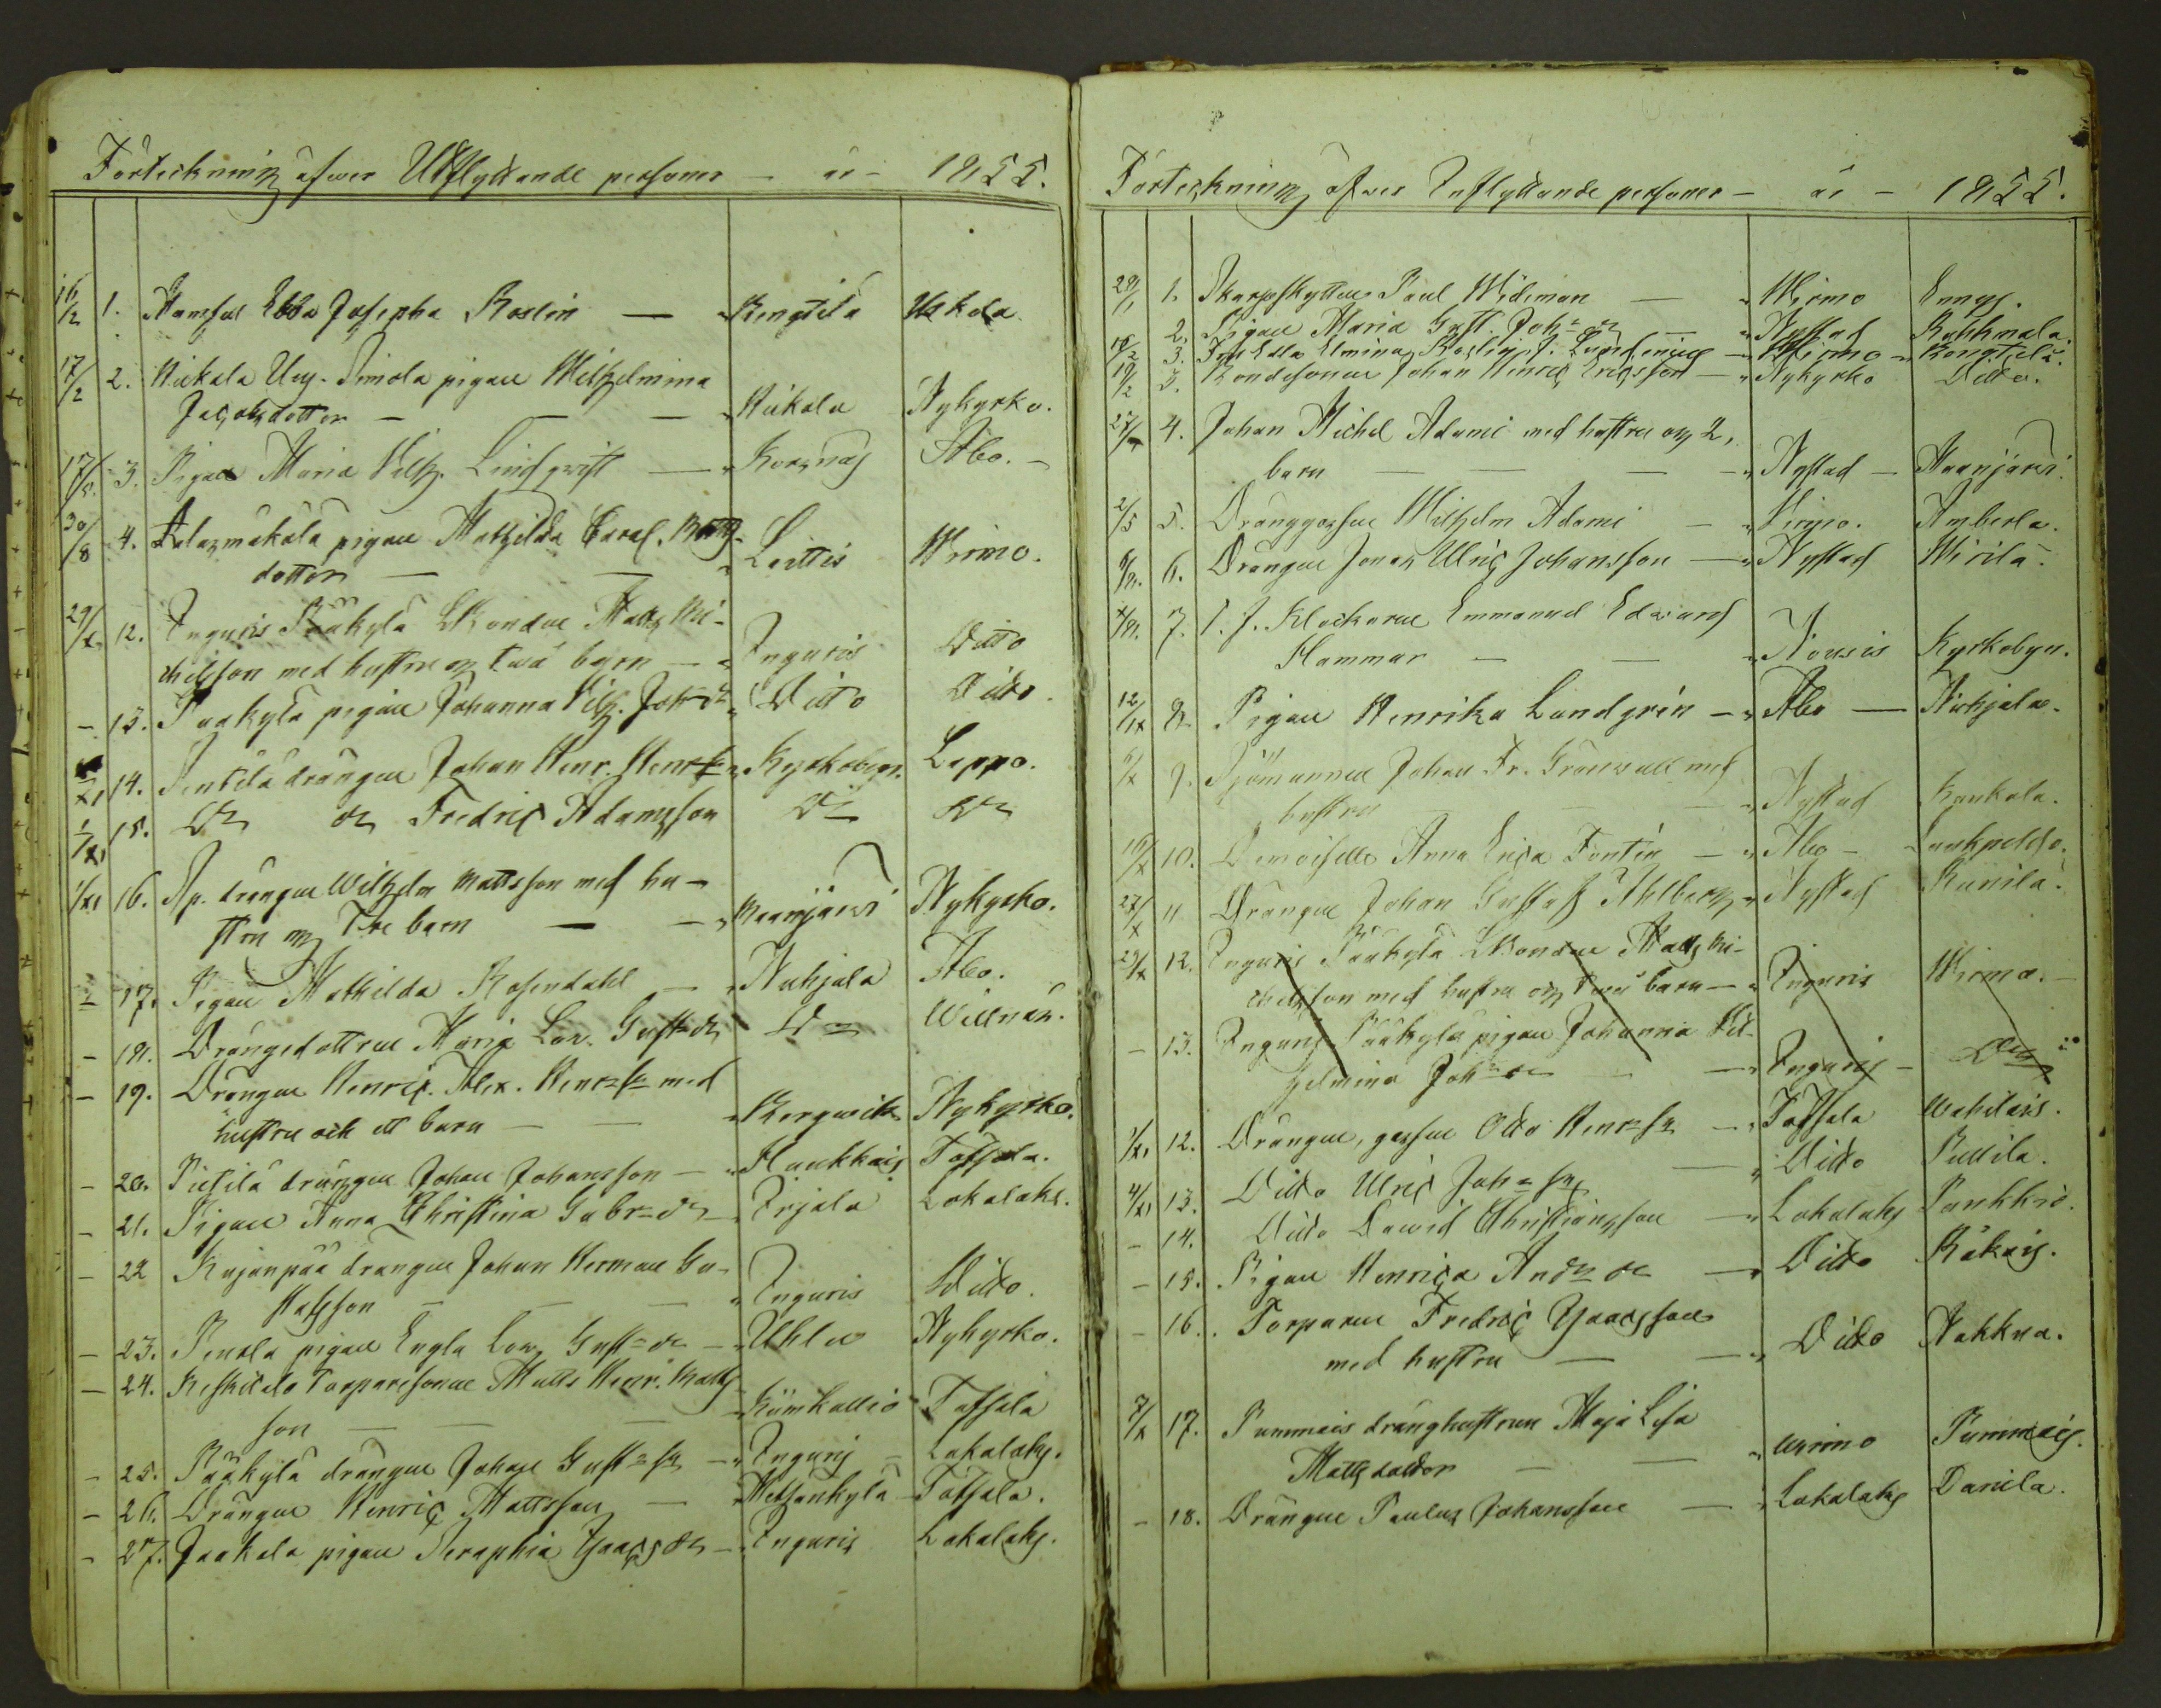 Förteckning öfwer Utflyttande personer - år - 1855.
16/2 1. Mamsel Ebba Josepha Roslin — Bengtila
17/2 2. Nikala Pigan Wilhelmina
Jacobsdotter — — — Nikala Nykyrko.
17/5 3. Pigan Maria Vilh. Lindqvist — Korsnäs Åbo. -
30/8 4. pigan Mathilda Carol. Matts-
dotter — — Leittis Wirmo.
29/X 12. Inguris Pääkylä Bonden Matts Mi-
chelsson med hustru och två barn — Inguris Ditto
- 13. Pääkylä pigan Johanna Vilh. Joh dr Ditto Ditto.
14. Penttilä drängen Johan Henr. Henr.s. Kyrkobyn. Lappo.
1/XI 15. Do do Fredric Adamsson Do Do
1/XI 16. drängen Wilhelm Mattsson med hu-
stru och Tre barn — — Maanjärwi Nykyrko.
- 17. Pigan Mathilda Rosendahl — Nuhjala Åbo.
- 18. Drängedottren Maria Lov. Gust dr Do Willnäs.
- 19. Drängen Henric Alex. Henr s. med
hustru och ett barn — — Bergwik Nykyrko.
- 20. Pietilä drängen Johan Johansson — Haukkais Töfsala.
- 21. Pigan Anna Christina Gabr dr Irjala Lokalaks.
- 22 Kujanpää drängen Johan Herman Gu-
stafsson — — — Inguris Ditto.
- 23. pigan Engla Lov. Gust dr — Uhlu Nykyrko.
- 24. Keskitalo Torparesonen Matts Henr. Matts
son — — — Kiimkallio Töfsala
- 25. Pääkylä drängen Johan Gust s. — Inguris — Lokalaks.
- 26. Drängen Henric Mattsson — Metsänkylä — Töfsala.
- 27. Jaakola pigan Seraphia Isaacs dr — Inguris Lokalaks.
Förteckning öfwer Inflyttande personer - år - 1855.
29/1 1. Skarpskytten Paul Wideman — Wirmo
2. Pigan Maria Gust. Joh dr — Nystad
18/2 3. Ebba Elmina Roslin, f. — Wirmo — Bengtilä.
19/2 3. Bondesonen Johan Henric Ericsson — Nykyrko Ditto.
4. Johan Michel Adami med hustru och 2,
barn — — — Nystad — Maanjärwi.
2/5 5. Dränggossen Wilhelm Adami — Wirmo. Amberla.
6. Drängen Jonas Ulric Johansson — Nystad Wirila.
7. Klockaren Emmanuel Edward
Hammar — — Nousis Kyrkobyn.
12/IX 8. Pigan Henrika Lundgrén — Åbo — Nuhjala.
9. Sjömannen Johan Fr. Grönwall med
hustru — — Nystad Kaukola.
16/X 10. Demoiselle Anna Erica Fontin — Åbo — Laukpeldo.
27/X 11 Drängen Johan Gustaf Ahlberg — Nystad Kunila.
29/X 12. Inguris Pääkylä Bonden Matts Mi-
chelsson med hustru och två barn — Inguris Wirmo. —
- 13. Inguris Pääkylä pigan Johanna Vil-
helmina Joh dr — — Inguris — Do
1/XI 12. Drängen, gossen Otto Henr s. — Töfsala Wehilais.
4/XI 13. Ditto Ulric Joh s. — Ditto Pullila.
- 14. Ditto Dawid Christiansson — Lokalaks Pankkio.
- 15. Pigan Henrica And dr — Ditto Räkais.
- 16. Torparen Fredric Isaacsson
med hustru — — Ditto Nakkua.
7/X 17. Pummais dränghustrun Maja Lisa
Mattsdotter — — Wirmo Pummais.
- 18. Drängen Paulus Johansson — Lokalaks Danila.